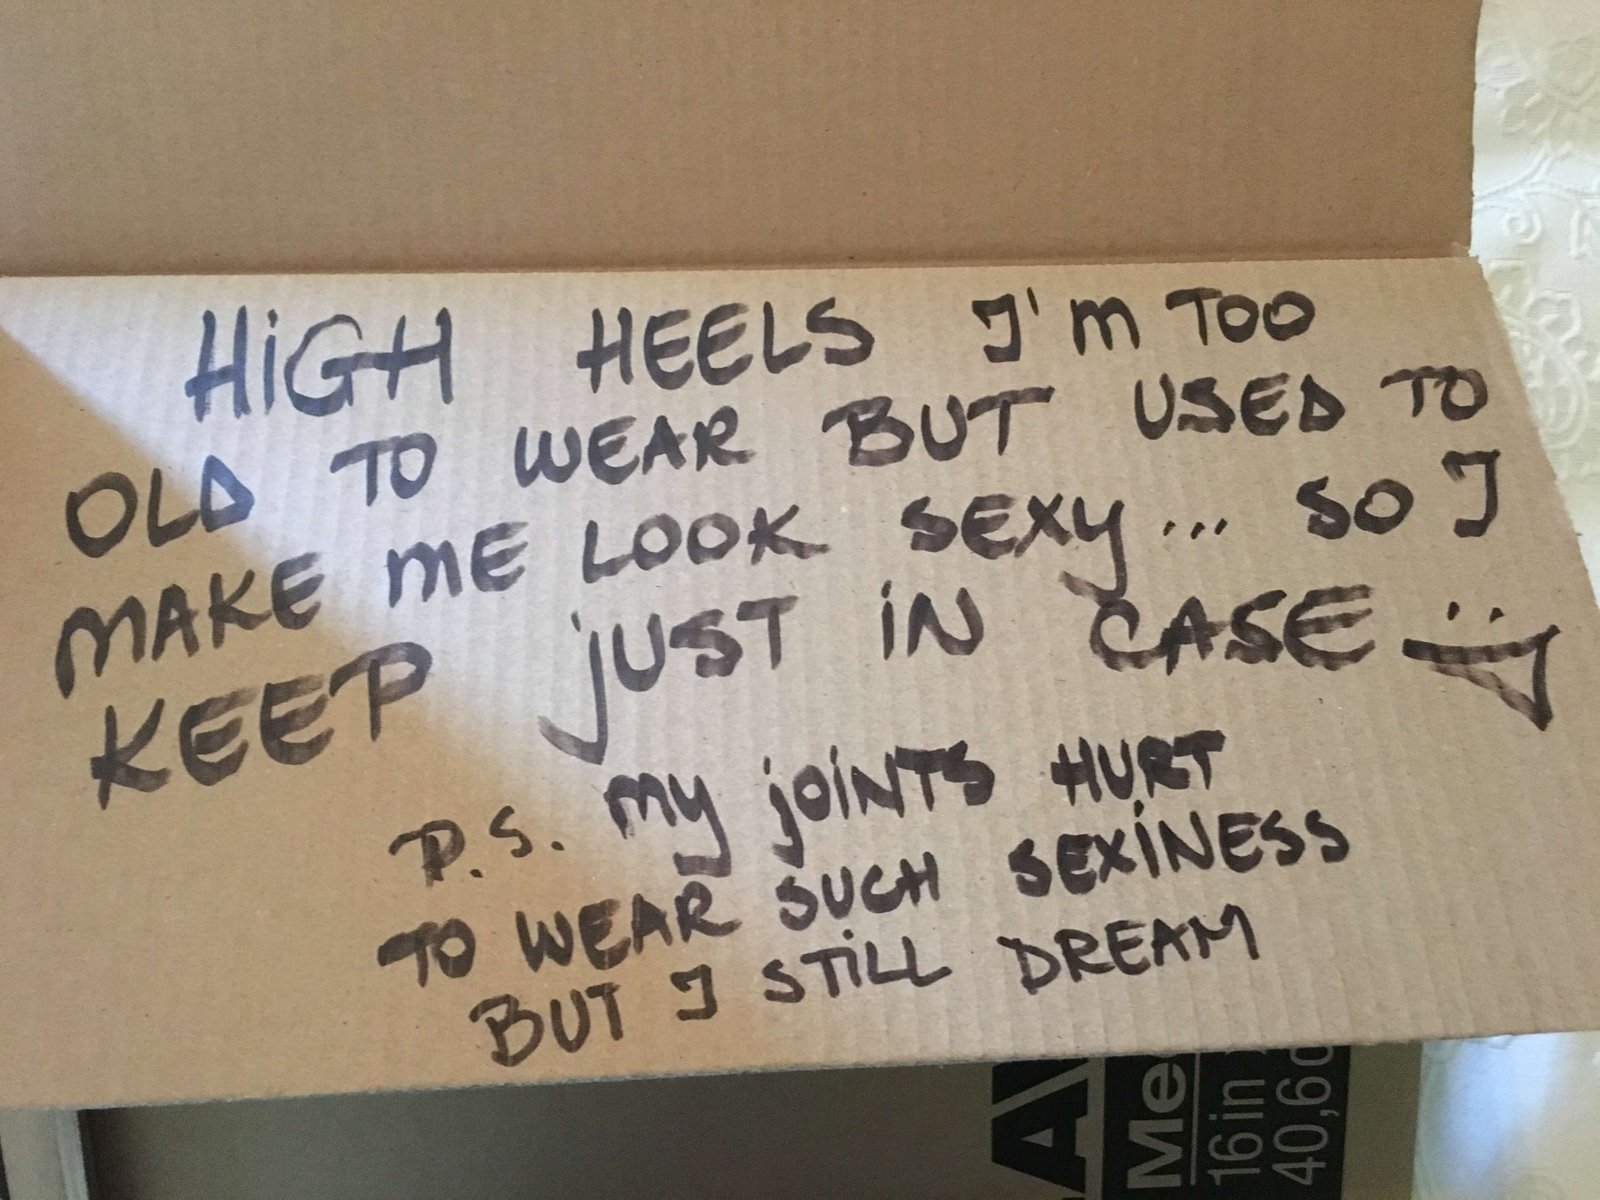 HiGH HEELS I'm TOO
OLD TO WEAR BUT USED TO
MAKE mE LOOK SEXy... SO I
KEEP jUST iN CASE :)
P.S. my jOiNTS HURT
TO WEAR SUCH SEXiNESS
BUT I STiLL DREAM
Me
16 in
40,6